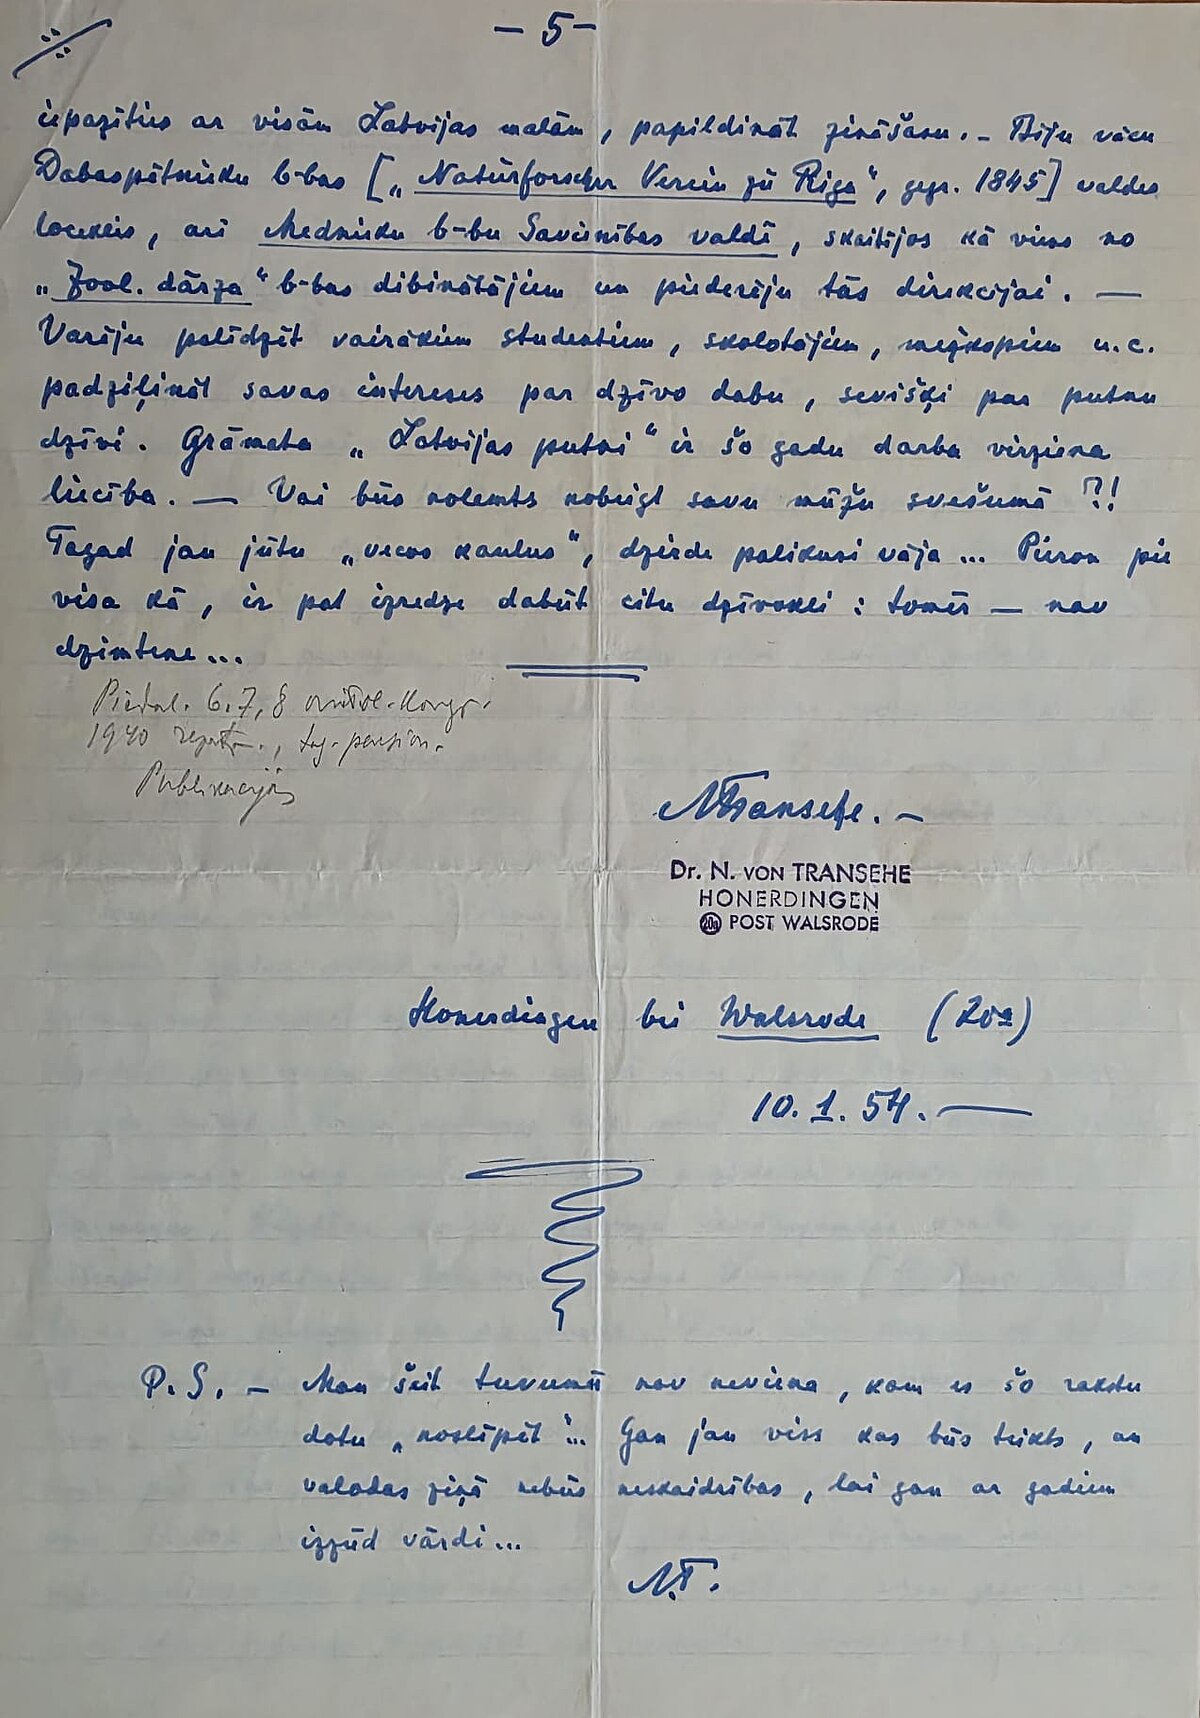 - 5 -
iepazīties ar visām Latvijas malām, papildināt zināšanu. - Biju vācu
Dabaspētnieku b-bas [„Naturforscher Verein zu Riga“, gegr. 1845] valdes
loceklis, arī Mednieku b-bu Savienības valdē, skaitījos kā viens no
„Zool. dārza“ b-bas dibinātājiem un piederēju tās direkcijai. —
Varēju palīdzēt vairākiem studentiem, skolotājiem, mežkopiem u.c.
padziļināt savas intereses par dzīvo dabu, sevišķi par putnu
dzīvi. Grāmata „Latvijas putni“ ir šo gadu darba virziena
liecība. — Vai būs nolemts nobeigt savu mūžu svešumā ?!
Tagad jau jūtu „vecos kaulus“, dzirde palikusi vāja ... Pierod pie
visa kā, ir pat izredze dabūt citu dzīvokli : tomēr — nav
dzimtene ...
Piedal. 6.7, 8 ornitol. Kongr.
1940 , tag. pension.
Publikācijas
NTransehe. -
Dr. N. VON TRANSEHE
HONERDINGEN
20a POST WALSRODE
Honerdingen bei Walsrode (20a)
10. 1. 54. —
P. S. - Man šeit tuvumā nav neviena, kam es šo rakstu
dotu „noslīpēt“... Gan jau viss kas būs teikts, un
valodas ziņā nebūs neskaidrības, lai gan ar gadiem
izzūd vārdi ...
N.T.